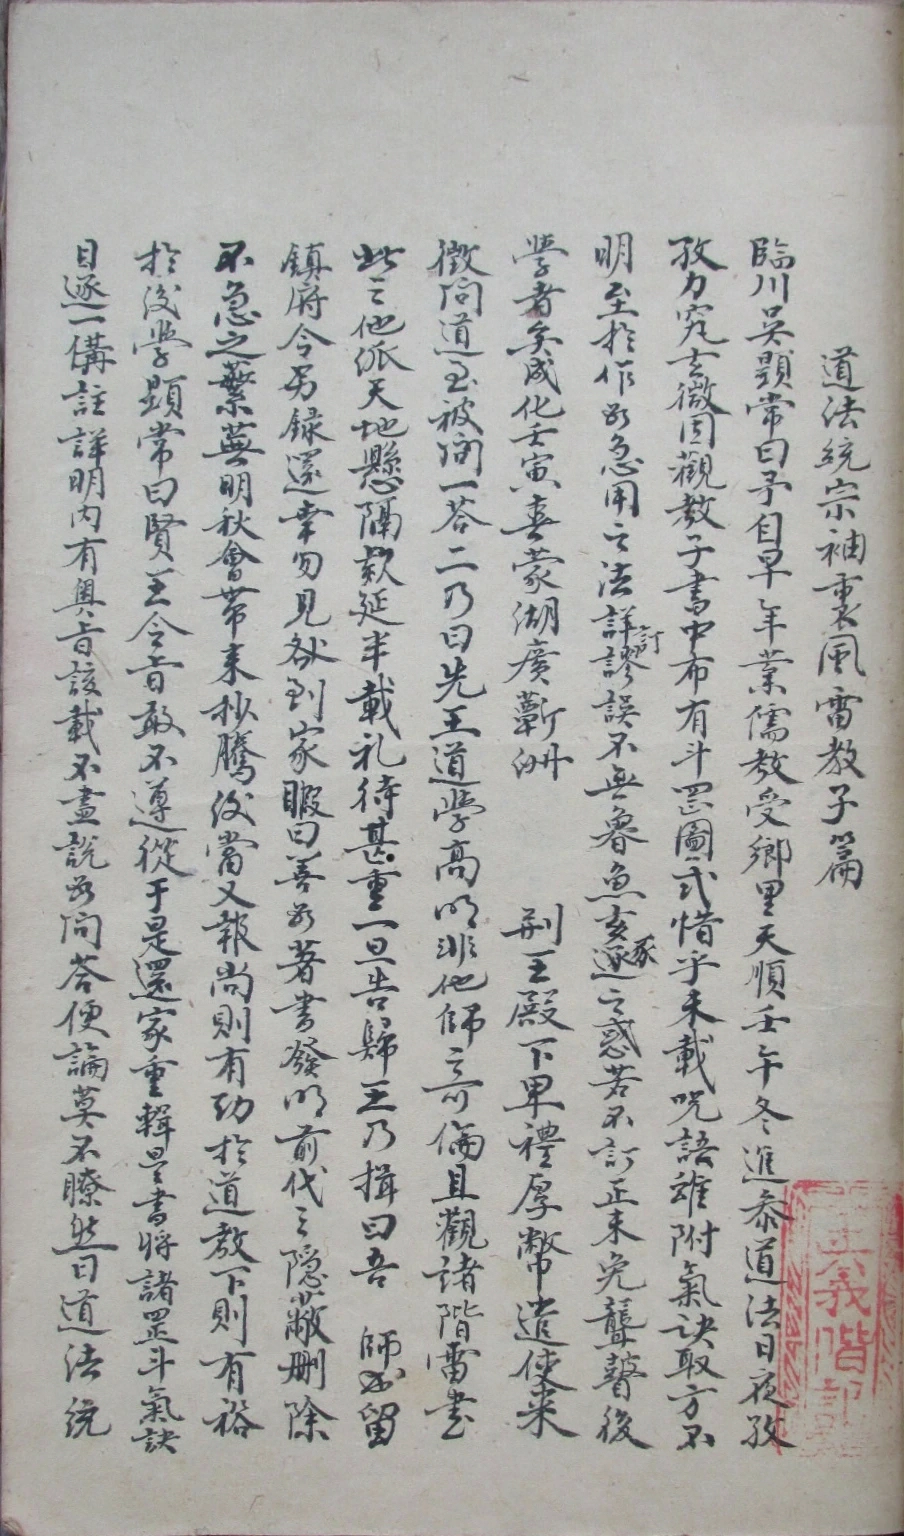 道法統宗袖裏風雷教子篇
臨川吳顕常曰予自早年業儒教受鄉里天順壬午冬進泰道法日夜孜
孜力究玄微因觀教子書中布有斗罡圖式惜乎未載咒語雖附氣訣取方不
明至於作用急用之法詳訂謬誤不無魯魚亥逐豕之惑若不訂正未免聾瞽後
學者矣成化壬寅喜蒙湖廣蘄州荆王殿下卑禮厚幣遣使來
徵問道至彼問一荅二乃曰先王道學高明非他師之可倫且觀諸階雷書
此之他派天地懸隔欵延半載礼待甚重一旦告歸王乃揖曰吾師必留
鎮府今另錄還幸勿見却到家暇日善為著書發明前代之隐蔽删除
不急之蘩蕪明秋會帶来抄騰後當又報尚則有功於道教下則有裕
於後學顕常曰賢王令旨敢不遵從于是還家重輯是書將諸罡斗氣訣
目逐一備註詳明内有奥旨該載不盡說為問荅便論莫不瞭然曰道法統
義階記